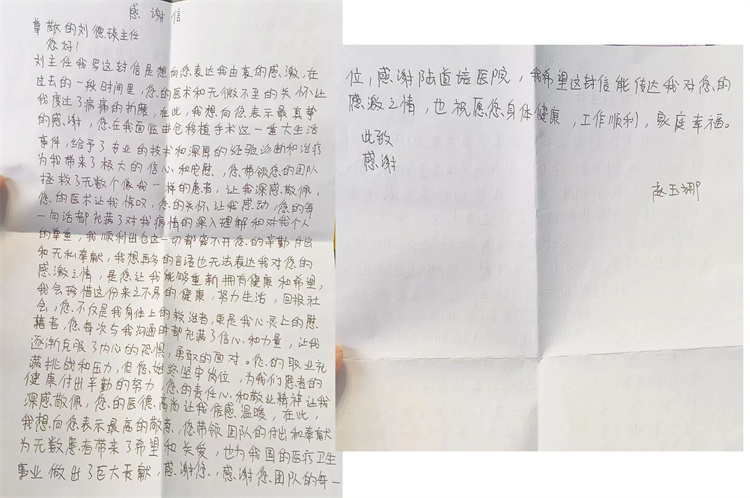 感谢信
尊敬的刘德琰主任
您好！
刘主任我写这封信是想向您表达我由衷的感激，在
过去的一段时间里，您的医术和无微不至的关怀让
我度过了病痛的折磨，在此，我想向您表示最真挚
的感谢，您在我面临进仓移植手术这一重大生活
事件，给予了专业的技术和深厚的经验诊断和治疗
为我带来了极大的信心和安慰，您带领您的团队
拯救了无数个像我一样的患者，让我深感敬佩，
您的医术让我惊叹，您的关怀让我感动，您的每
一句话都充满了对我病情的深入理解和对我个人
的尊重，我顺利出仓这一切都离不开您的辛勤付出
和无私奉献，我想再多的言语也无法表达我对您的
感激之情，是您让我能够重新拥有健康和希望，
我会珍惜这份来之不易的健康，努力生活，回报社
会，您不仅是我身体上的救治者，更是我心灵上的慰
藉者，您每次与我沟通时都充满了信心和力量，让我
逐渐克服了内心的恐惧，勇敢的面对。您的职业充
满挑战和压力，但您始终坚守岗位，为我们患者的
健康付出辛勤的努力，您的责任心和敬业精神让我
深感敬佩，您的医德高尚让我倍感温暖，在此，
我想向您表示最高的敬意，您带领团队的付出和奉献
为无数患者带来了希望和关爱，也为我国的医疗卫生
事业做出了巨大贡献，感谢您，感谢您团队的每一
位，感谢陆道培医院，我希望这封信能传达我对您的
感激之情，也祝愿您身体健康，工作顺利，家庭幸福。
此致
感谢
玉娜